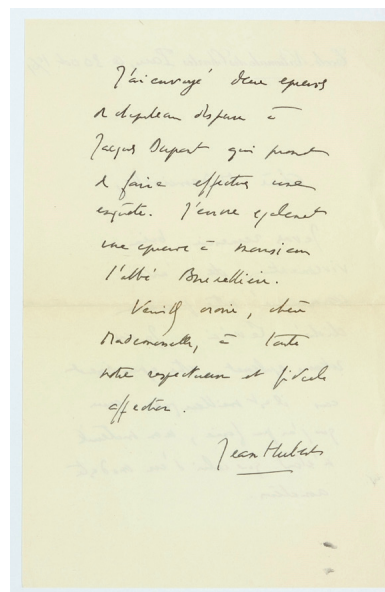 J'ai envoyé deux épreuves
du chapiteau disparu à
Jacques Dupont qui promet
de faire effectuer une
enquête. J'envoie également
une épreuve à monsieur
l'abbé
Veuillez croire, chère
Mademoiselle, à toute
notre respectueuse et fidèle
affection.
Jean Hubert